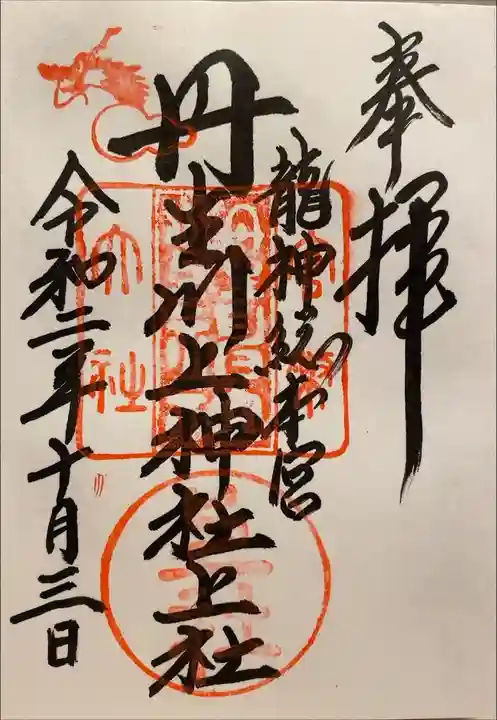 奉拝
龍神総本宮
丹生川上神社上社
令和二年十月三日